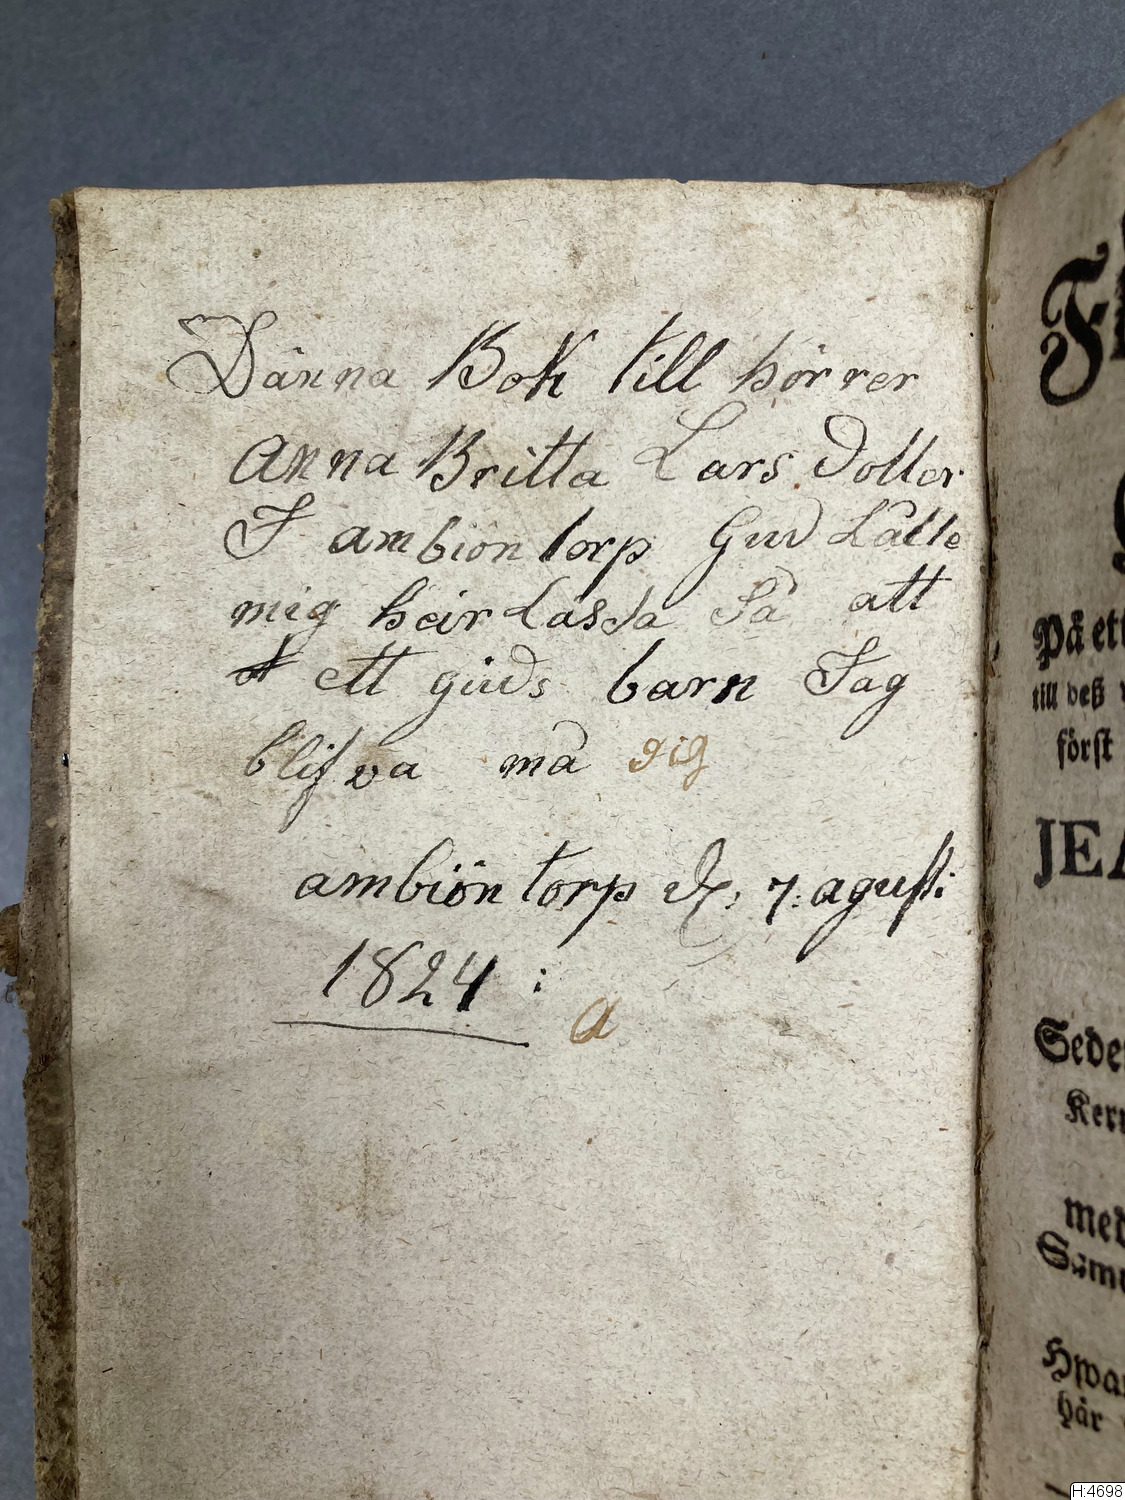 Dänna Bok till hörrer
Anna Britta Lars Dotter
I ambiön torp Gud Lätte
mig heir Lassa Så att
ett guds barn Jag
blifva må gig
ambiön torp d: 7: agusti:
1824 :
a
På ett
till deß
först
JEA
Seder
Kern
med
Samu
Hwar
här
H:4698